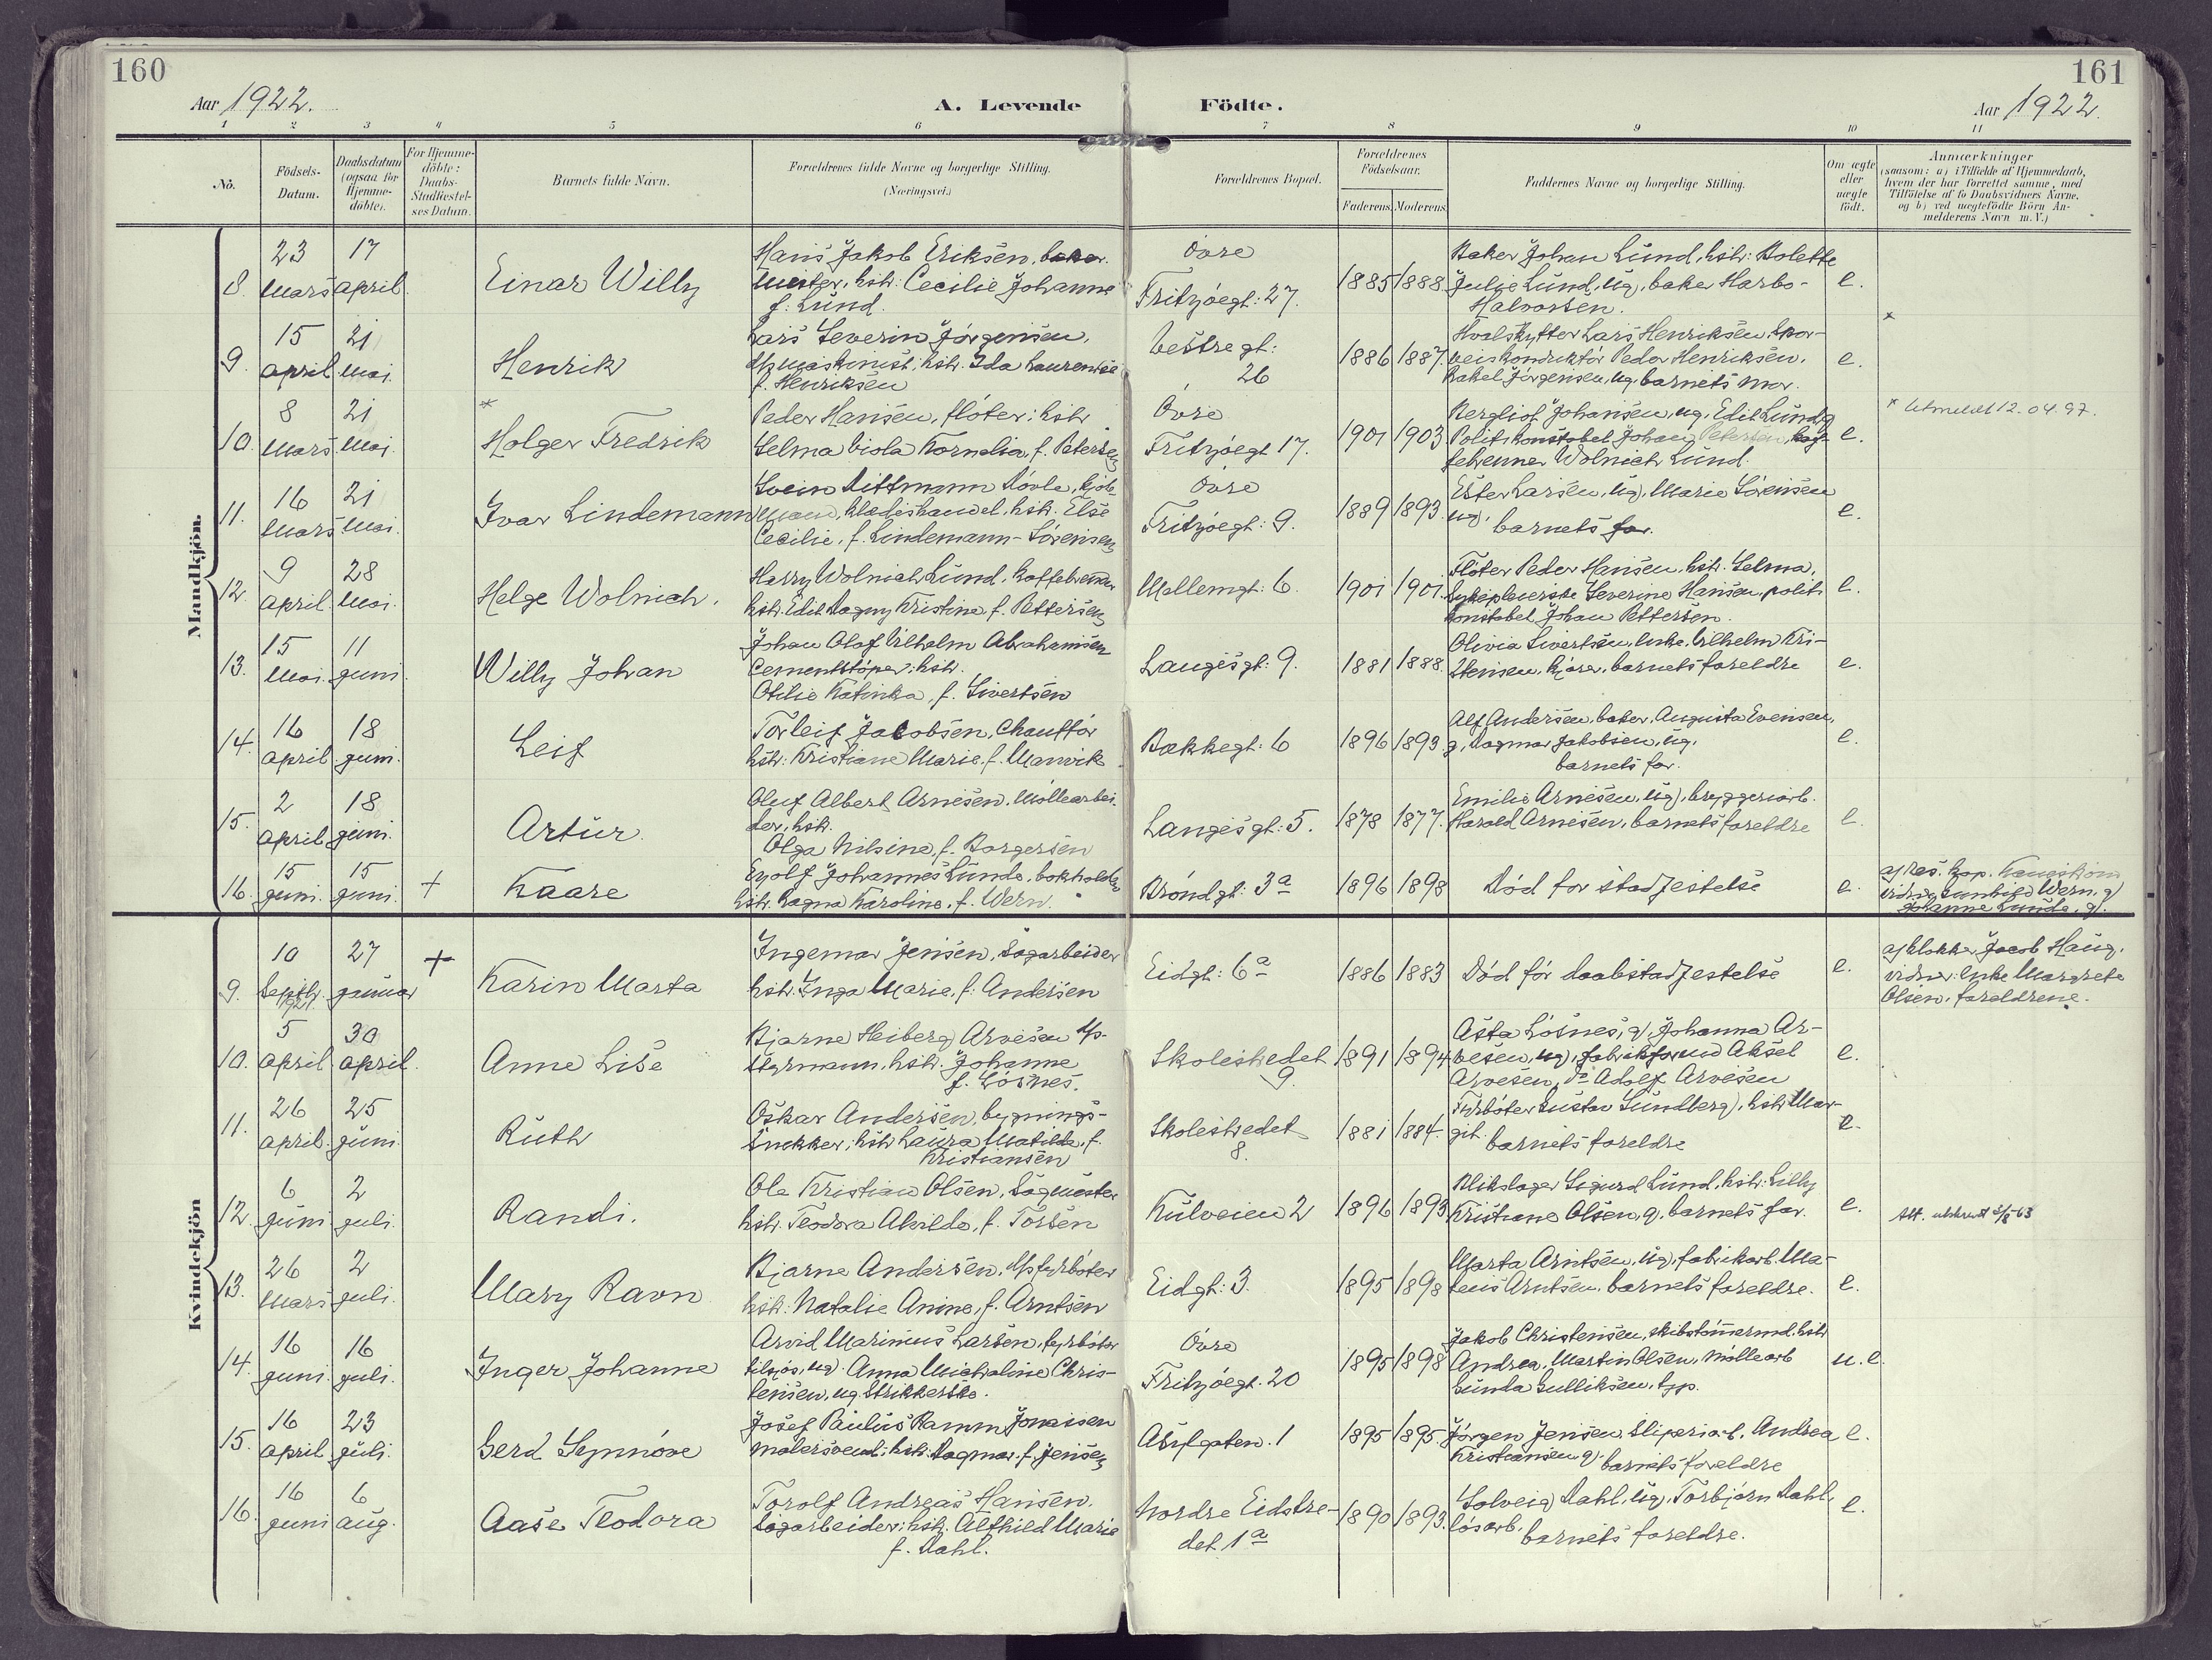 160
161
Aar 1922.
A. Levende Födte.
Aar 1922.
1 2 3 4 5 6 7 8 9 10 11
No.
Födsels-Datum.
Daabsdatum (ogsaa for Hjemme-döbte).
For Hjemme-döbte: Daabs-Stadfæstel-ses Datum.
Barnets fulde Navn.
Forældrenes fulde Navne og borgerlige Stilling.
(Næringsvei.)
Forældrenes Bopæl.
Forældrenes Födselsaar.
Faderens. Moderens.
Faddernes Navne og borgerlige Stilling.
Om ægte eller uægte födt.
Anmærkninger
(saasom: a) i Tilfælde af Hjemmedaab,
hvem der har forrettet samme, med
Tilföielse af to Daabsvidners Navne,
og b) ved uægtefödte Börn An-
melderens Navn m. V.)
Mandkjön.
8. 23 mars 17 april. Einar Willy
Hans Jakob Eriksen, baker-
mester, hstr: Cecilie Johanne
f. Lund.
Övre
Fritzöegt: 27.
1885 1888.
Baker Johan Lund, hstr: Bolette
Julie Lund, ug, baker Harbo-
Halvorsen.
e.
9. 15 april 21 mai. Henrik
Lars Severin Jörgensen,
d/s maskinist, hstr. Ida Laurentse
f. Henriksen
Vestregt:
26
1886 1887.
Hvalskytter Lars Henriksen, Spor-
veiskonduktör Peder Henriksen,
Rakel Jörgensen, ug, barnets mor.
e.
*
10. 8 mars 21 mai. * Holger Fredrik
Peder Hansen, flöter; hstr
Selma Viola Kornelia, f. Petersen
Övre
Fritzöegt 17.
1901 1903
Bergliot Johansen, ug, Edit Lund, g
Politikonstabel Johan Petersen, kaf-
febrenner Wolnich Lund.
e.
* Utmeldt 12.04.97.
11. 16 mars 21 mai. Ivar Lindemann
Svein Dittmann Dövle, kjöb-
mand, klædeshandel, hstr. Else
Cecilie, f. Lindemann-Sörensen
Övre
Fritzöegt: 9.
1889 1893
Ester Larsen, ug, Marie Sörensen
ug, barnets far.
e.
12. 9 april. 28 mai. Helge Wolnich.
Harry Wolnich Lund, kaffebrenner
hstr. Edit Dagny Kristine, f. Pettersen
Mellemgt: 6
1901 1901
Flöter Peder Hansen, hstr. Selma,
Sykepleierske Severine Hansen, politi
konstabel Johan Pettersen.
e.
13. 15 mai. 11 juni. Willy Johan
Johan Olaf Vilhelm Abrahamsen
Cementstöper; hstr.
Otilie Katinka, f. Sivertsen
Langesgt: 9.
1881 1888
Olivia Sivertsen, enke, Vilhelm Kri-
stensen, kjörer, barnets foreldre
e.
14. 16 april. 18 juni. Leif
Torleif Jacobsen, Chaufför
hstr: Kristiane Marie, f. Manvik
Bækkegt: 6
1896 1893
Alf Andersen, baker, Augusta Evensen,
g, Dagmar Jakobsen, ug,
barnets far.
e.
15. 2 april 18 juni. Artur.
Oluf Albert Arnesen, Möllearbei-
der, hstr.
Olga Nilsine, f. Borgersen
Langesgt: 5.
1878 1877.
Emilie Arnesen, ug, bryggeriarb.
Harald Arnesen, barnets foreldre
e.
16. 15 juni. 15 juni. + Kaare
Eyolf Johannes Lunde, bokholder
hstr. Ragna Karoline, f. Wern.
Bröndgt: 3a
1896 1898
Död for stadfestelse
e.
af Res. kap.
Wern, g
Johanne Lunde, g.
Kvindekjön
9. 10 Septbr. 1921. 27 januar + Karin Marta
Ingemar Jensen, Sagarbeider
hstr. Inga Marie, f. Andersen
Eidgt: 6a
1886 1883
Död för daabstadfestelse
e.
af klokker Jacob Haug,
vidner: enke Margrete
Olsen, foreldrene.
10. 5 april. 30 april. Anne Lise
Bjarne Heiberg Arvesen d/s-
styrmann, hstr. Johanne
f. Lösnes.
Skolestredet
9.
1891 1894
Asta Lösnes, g, Johanna Ar-
vesen, ug, fabrikformd Aksel
Arvesen, do Adolf Arvesen
e.
11. 26 april. 25 juni Ruth
Oskar Andersen, bygnings-
snekker; hstr Laura Matilde, f.
Kristiansen
Skolestredet
8.
1881 1884.
Fyrböter Gustav Sundberg, hstr Mar-
git. barnets foreldre
e.
12. 6 juni 2 juli. Randi.
Ole Kristian Olsen, Sagmester
hstr. Teodora Alvilde, f. Torsen
Kulveien 2
1896 1893
Blikslager Sigurd Lund, hstr: Lilly
Kristiane Olsen, g, barnets far.
e.
Att. utskrevet 3/8-63
13. 26 mars 2 juli. Mary Ravn
Bjarne Andersen, d/s fyrböter
hstr: Natalie Anine, f. Arntsen
Eidgt: 3.
1895 1898
Marta Arntsen, ug, fabrikarb. Ma-
teus Arntsen, barnets foreldre.
e.
14. 16 juni. 16 juli. Inger Johanne
Arvid Marinius Larsen, fyrböter
tilsjös, ug. Anna Michaline Chris-
tensen, ug. Strikkerske.
Övre
Fritzöegt. 20
1895 1898
Jakob Christensen, skibstömmermd. hstr
Andrea, Martin Olsen, möllearb
Gunda Gulliksen, tpp.
u.e.
15. 16 april 23 juli. Gerd Synnöve
Josef Paulus Ramm Jonassen
malersvend; hstr. Dagmar f. Jensen
Asylgaten. 1
1895 1895
Jörgen Jensen, Sliperiarb. Andrea
Kristiansen g. barnets foreldre
e.
16. 16 juni 6 aug. Aase Teodora
Torolf Andreas Hansen.
Sagarbeider; hstr. Alfhild Marie
f. Dahl.
Nordre Eidstre-
det 1a
1890 1893.
Solveig Dahl, ug, Torbjörn Dahl,
lösarb. barnets foreldre.
e.